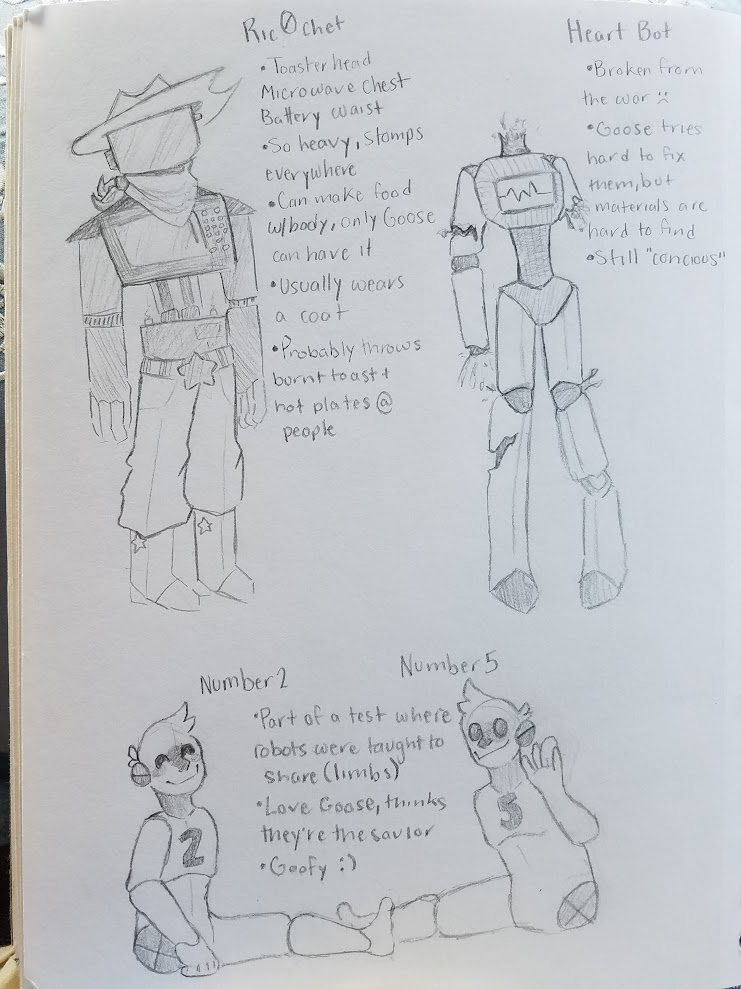 Ric0chet
•Toaster head
Microwave chest
Battery waist
•So heavy, stomps
everywhere
•Can make food
w/body, only Goose
can have it
•Usually wears
a coat
•Probably throws
burnt toast +
hot plates @
people
Heart Bot
•Broken from
the war :(
•Goose tries
hard to fix
them, but
materials are
hard to find
•Still "concious"
Number 2
Number 5
•Part of a test where
robots were taught to
share (limbs)
•Love Goose, thinks
they're the savior
•Goofy :)
2
5